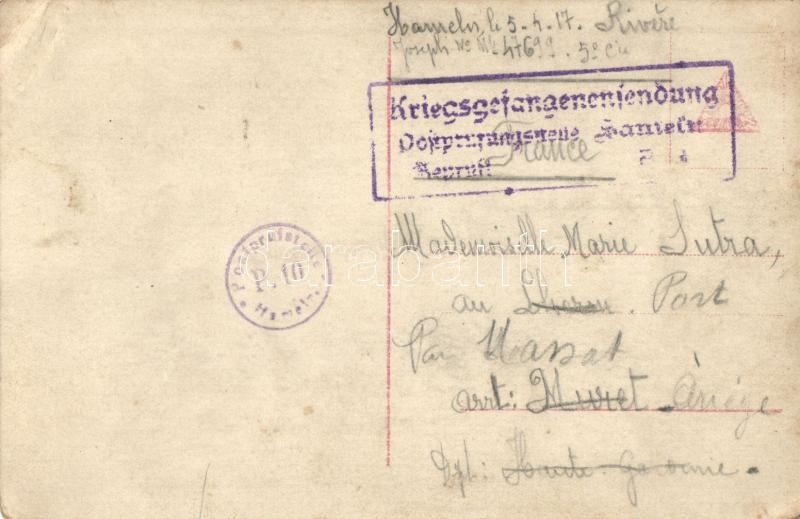 Hameln, le 5-4-17. Rivère
Joseph No 47699. 5e Cie
Kriegsgefangenensendung
Postprüfungsstelle Hameln
Geprüft
France
Postprüfstelle
P. 10
Hameln
Mademoiselle Marie Sutra,
au Port
Par Massat
arrt: Muret Ariège
Dpt: Haute-Garonne.
darabanth